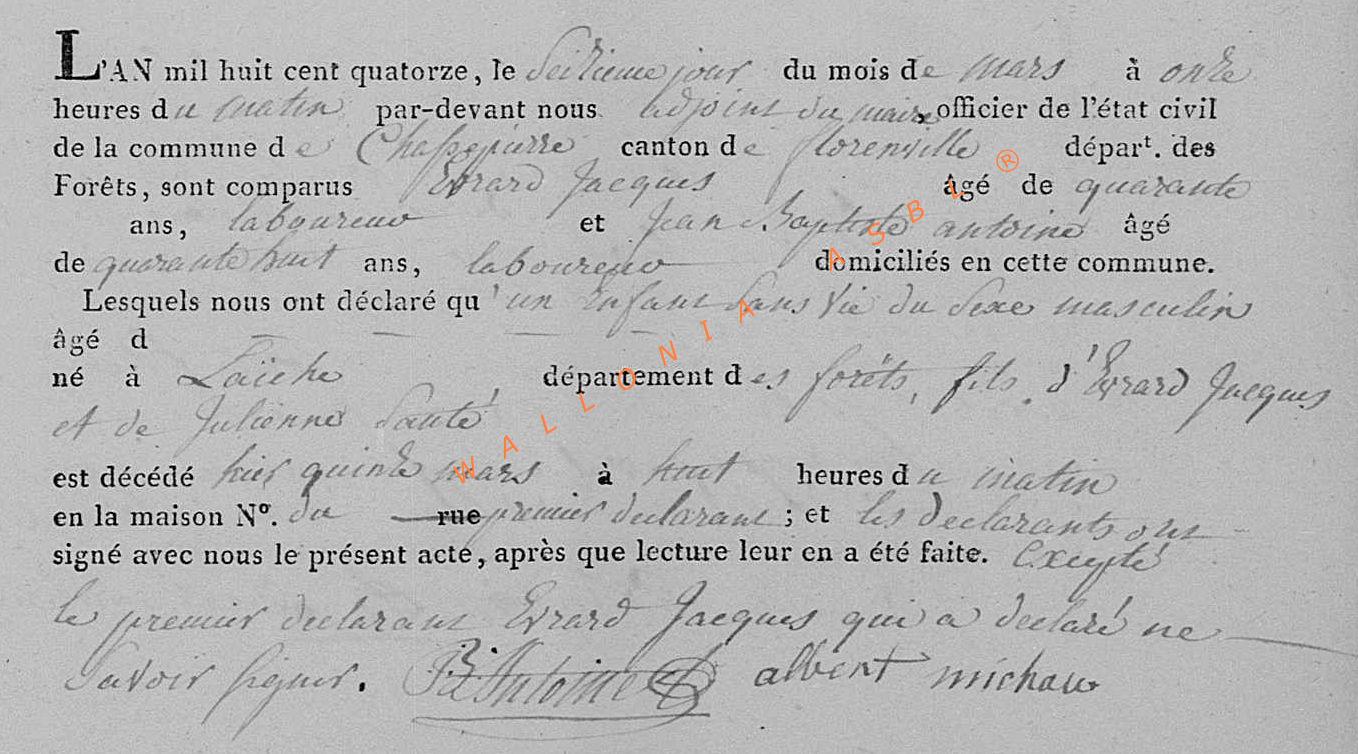 L'AN mil huit cent quatorze, le Seitieme jour du mois de mars à onze
heures du matin par-devant nous adjoint du maire, officier de l'état civil
de la commune de Chassepierre canton de florenville départ. des
Forêts, sont comparus Evrard Jacques âgé de quarante
ans, laboureur et Jean Baptiste antoine âgé
de quarante huit ans, laboureur domiciliés en cette commune.
Lesquels nous ont déclaré qu'un Enfant Sans Vie du Sexe masculin
âgé d
né à Laiche département des forêts, fils d'Evrard Jacques
et de Julienne
est décédé hier quinze mars à huit heures du matin
en la maison Nº. du rue premier declarant ; et les declarants ont
signé avec nous le présent acte, après que lecture leur en a été faite. Excepté
le premier declarant Evrard Jacques qui a declaré ne
Savoir signer. B Antoine albert michaux
WALLONIA ASBL ®